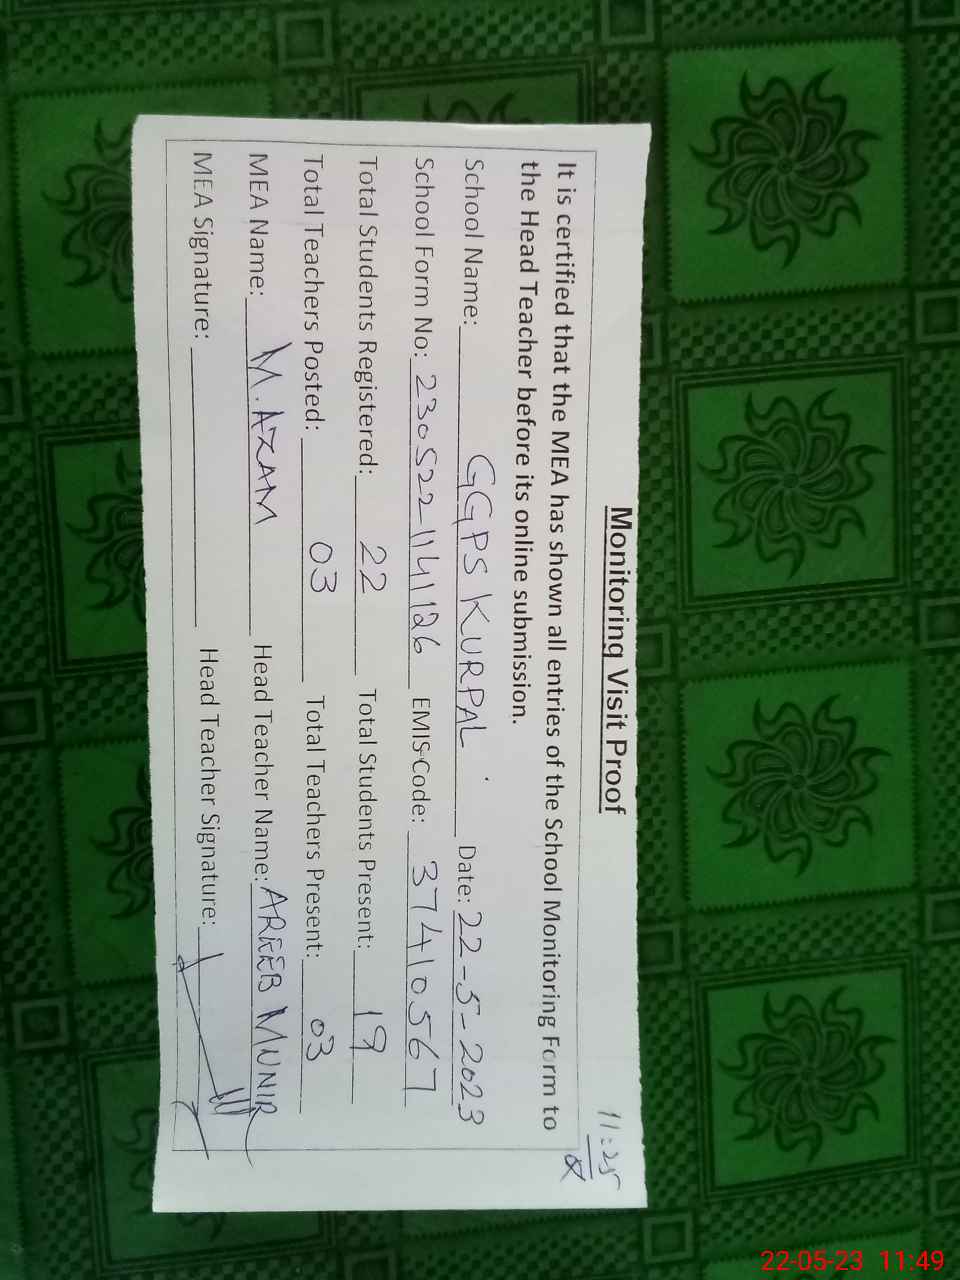 Monitoring Visit Proof
11:25
It is certified that the MEA has shown all entries of the School Monitoring Form to
the Head Teacher before its online submission.
School Name: GGPS KURPAL Date: 22-5-2023
School Form No: 230522114126 EMIS Code: 37410567
Total Students Registered: 22 Total Students Present: 19
Total Teachers Posted: 03 Total Teachers Present: 03
MEA Name: M. AZAM Head Teacher Name: AREEB MUNIR
MEA Signature: Head Teacher Signature:
22-05-23 11:49